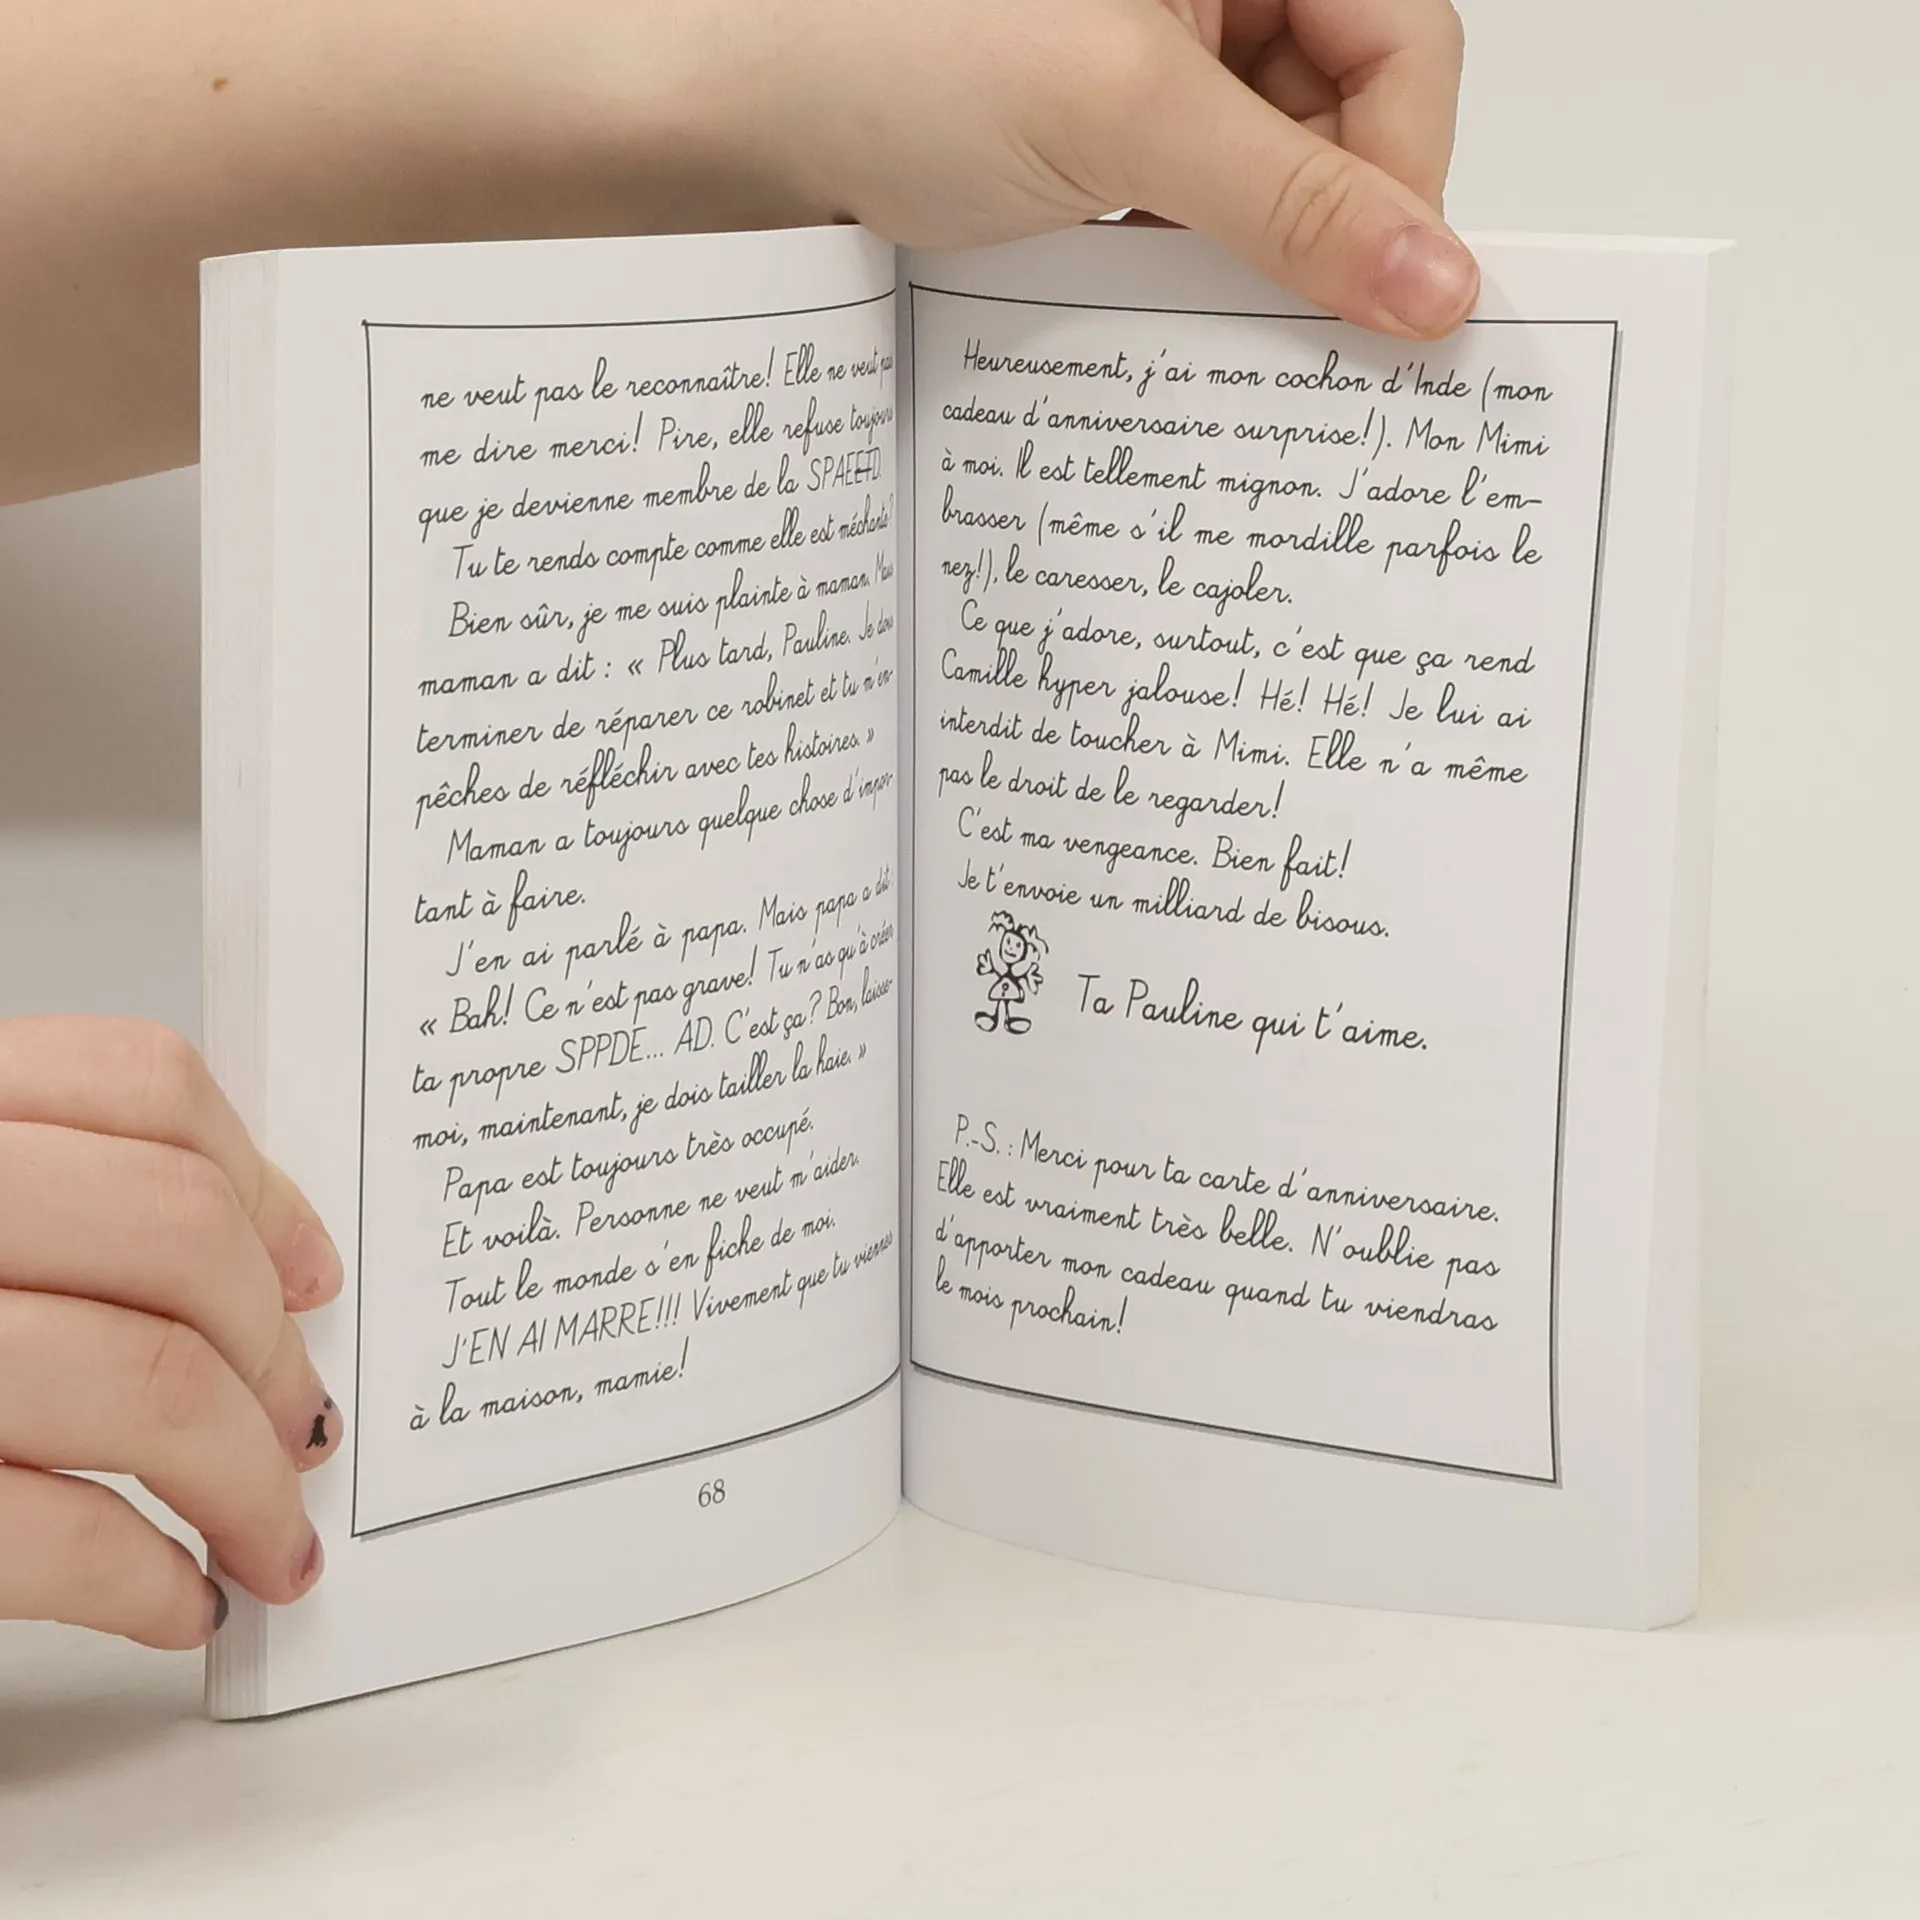 ne veut pas le reconnaître! Elle ne veut pas
me dire merci! Pire, elle refuse toujours
que je devienne membre de la
Tu te rends compte comme elle est méchante?
Bien sûr, je me suis plainte à maman. Mais
maman a dit : « Plus tard, Pauline. Je dois
terminer de réparer ce robinet et tu m'em-
pêches de réfléchir avec tes histoires. »
Maman a toujours quelque chose d'impor-
tant à faire.
J'en ai parlé à papa. Mais papa a dit :
« Bah! Ce n'est pas grave! Tu n'as qu'à créer
ta propre SPPDE... AD. C'est ça? Bon, laisse-
moi, maintenant, je dois tailler la haie. »
Papa est toujours très occupé.
Et voilà. Personne ne veut m'aider.
Tout le monde s'en fiche de moi.
J'EN AI MARRE!!! Vivement que tu viennes
à la maison, mamie!
68
Heureusement, j'ai mon cochon d'Inde (mon
cadeau d'anniversaire surprise!). Mon Mimi
à moi. Il est tellement mignon. J'adore l'em-
brasser (même s'il me mordille parfois le
nez!), le caresser, le cajoler.
Ce que j'adore, surtout, c'est que ça rend
Camille hyper jalouse! Hé! Hé! Je lui ai
interdit de toucher à Mimi. Elle n'a même
pas le droit de le regarder!
C'est ma vengeance. Bien fait!
Je t'envoie un milliard de bisous.
Ta Pauline qui t'aime.
P.-S. : Merci pour ta carte d'anniversaire.
Elle est vraiment très belle. N'oublie pas
d'apporter mon cadeau quand tu viendras
le mois prochain!